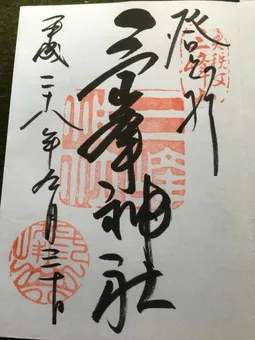 奥秩父
登拝
三峯神社
平成二十八年九月三十日